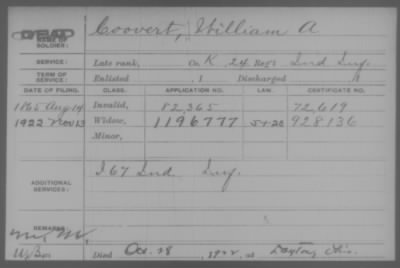 DEAD
NAME OF SOLDIER: Coovert, William A
SERVICE: Late rank, Co. K, 24 Reg't Ind Inf.
TERM OF SERVICE: Enlisted , 1 Discharged , 1
DATE OF FILING. CLASS. APPLICATION NO. LAW. CERTIFICATE NO.
1865 Aug 14 Invalid, 82,365 72,619
1922 Nov 13 Widow, 1196777 5-1-20 928136
Minor,
ADDITIONAL SERVICES: I 67 Ind Inf.
REMARKS:
Died Oct. 28, 1922, at Dayton, Ohio.